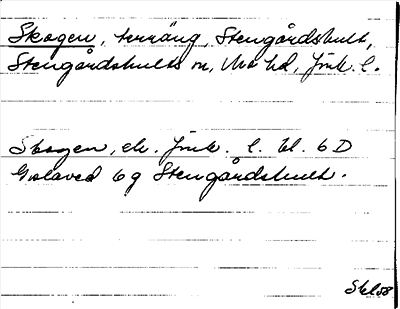 Skogen, terräng, Stengårdshult,
Stengårdshults sn, Mo hd, Jönk. l.
Skogen, ek. Jönk. l. bl. 6 D
Gislaved 6 g Stengårdshult.